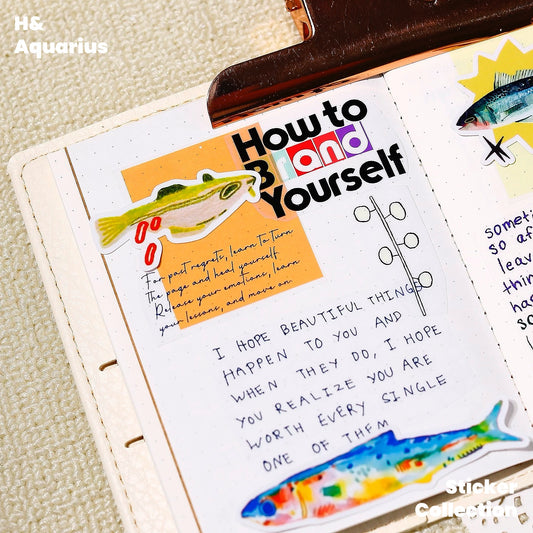 H&
Aquarius
How to
Brand
Yourself
For past regrets, learn to turn
The page and heal yourself
Release your emotions, learn
your lessons, and move on
I HOPE BEAUTIFUL THINGS
HAPPEN TO YOU AND
WHEN THEY DO, I HOPE
YOU REALIZE YOU ARE
WORTH EVERY SINGLE
ONE OF THEM
so
Sticker
Collection